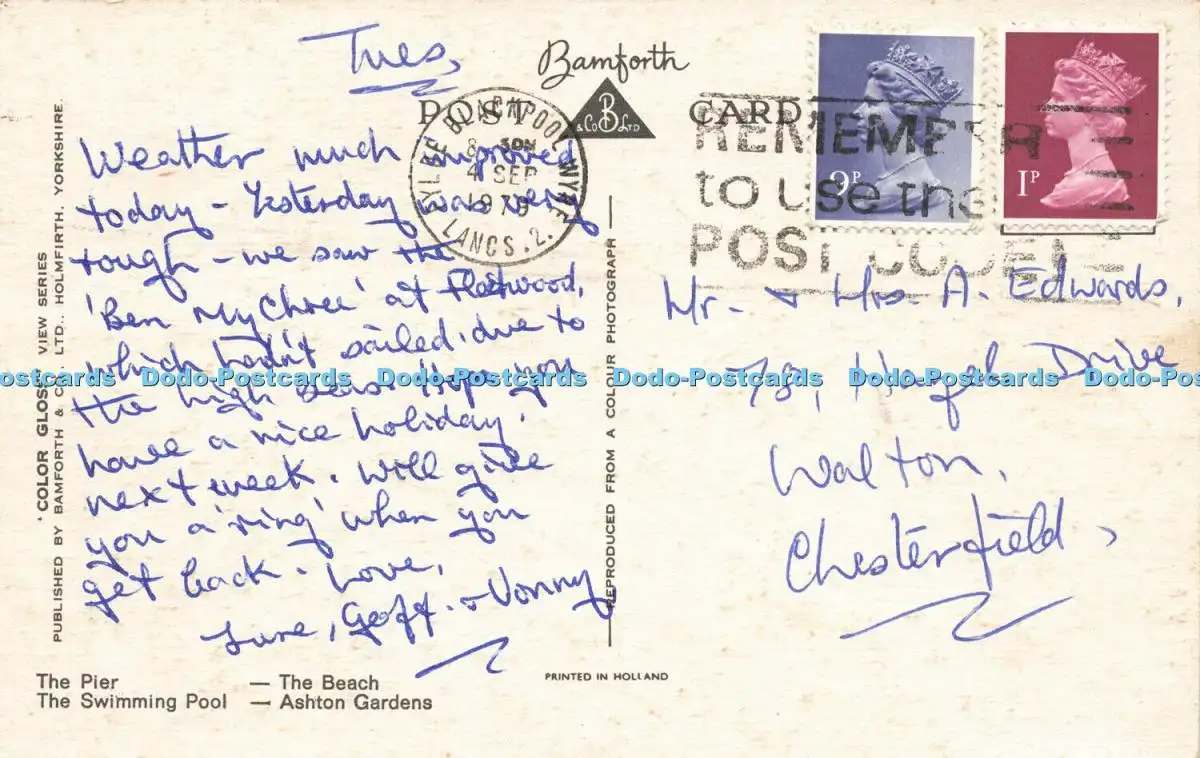 Tues,
Bamforth
POST CARD
B
& Co LTD
BLACKPOOL WYRE
8. 30PM
4 SEP
1979
LANCS. 2.
REMEMBER
to use the
POST CODE
9P
1P
Weather much improved
today - Yesterday was very
rough - we saw the
'Ben My Chree' at Fleetwood,
which hadn't sailed, due to
the high seas. Hope you
have a nice holiday.
next week. Will give
you a 'ring' when you
get back. Love,
June, Geoff. &
Mr. & Mrs. A. Edwards,
78, Hazel Drive
Walton,
Chesterfield,
'COLOR GLOSS' VIEW SERIES
PUBLISHED BY BAMFORTH & CO. LTD., HOLMFIRTH, YORKSHIRE.
REPRODUCED FROM A COLOUR PHOTOGRAPH
The Pier — The Beach
The Swimming Pool — Ashton Gardens
PRINTED IN HOLLAND
Dodo-Postcards Dodo-Postcards Dodo-Postcards Dodo-Postcards Dodo-Postcards Dodo-Postcards